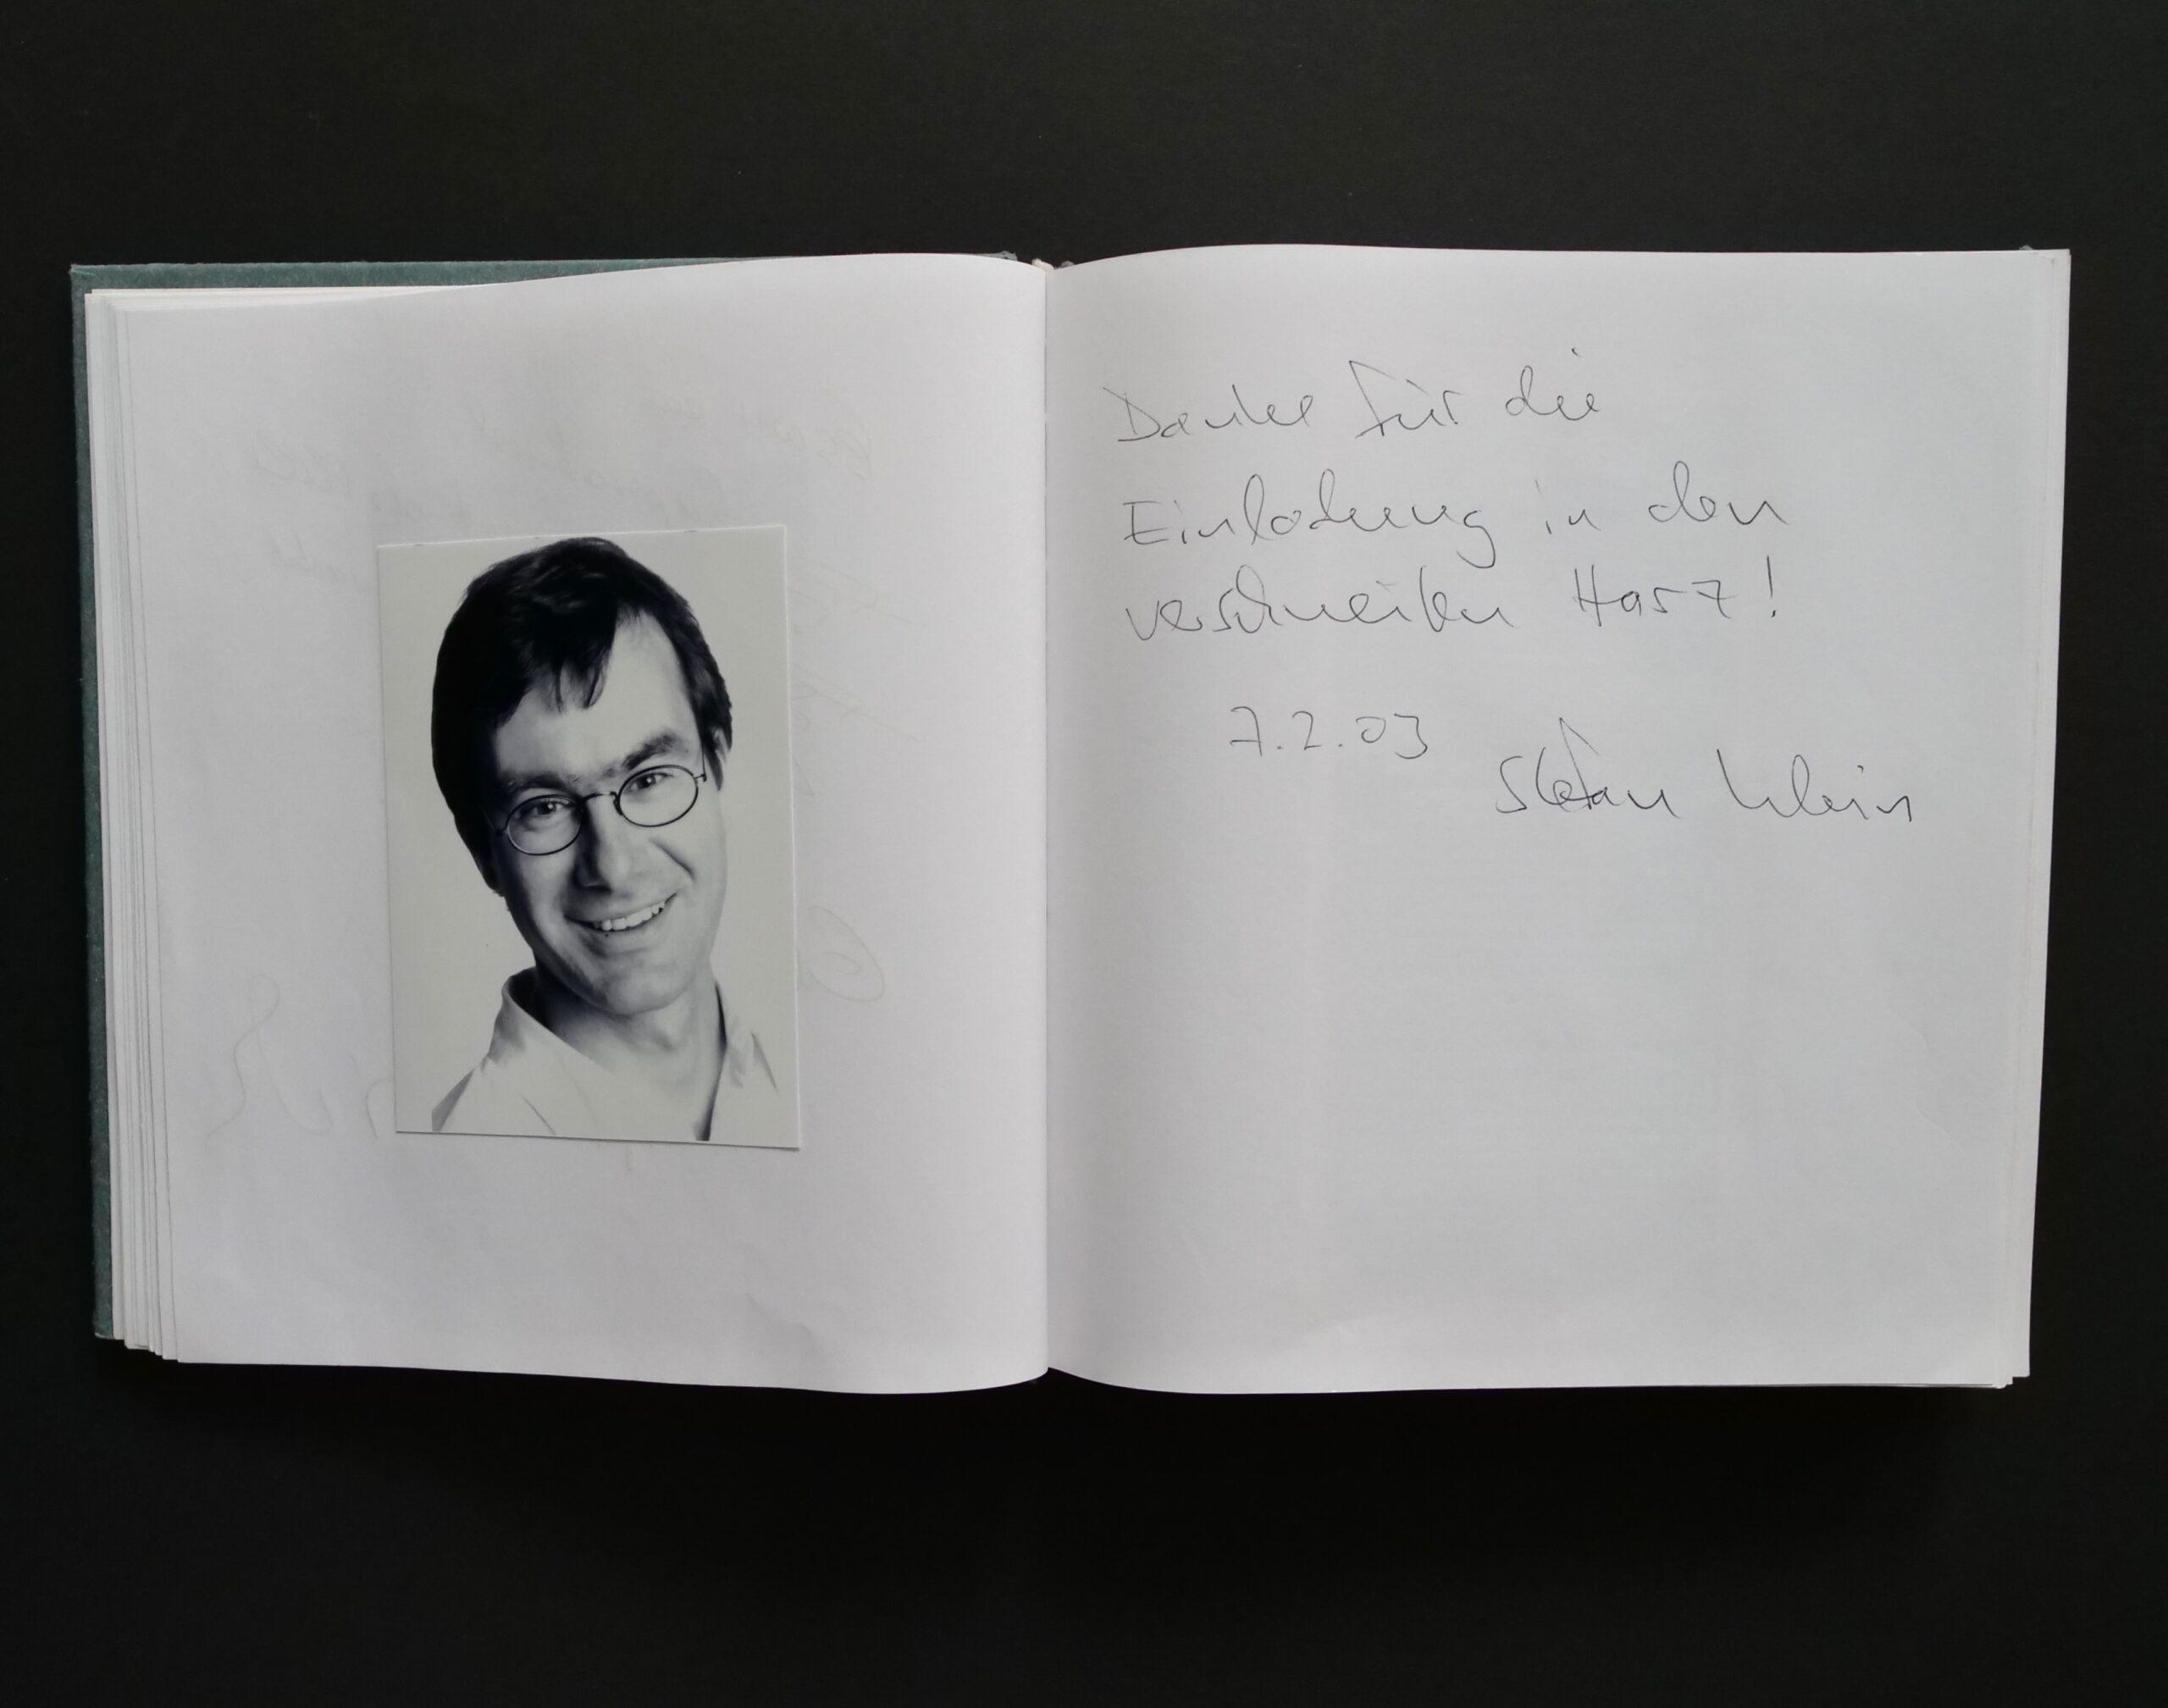 Danke für die
Einladung in den
verschneiten Harz!
7.2.03
Stefan Klein